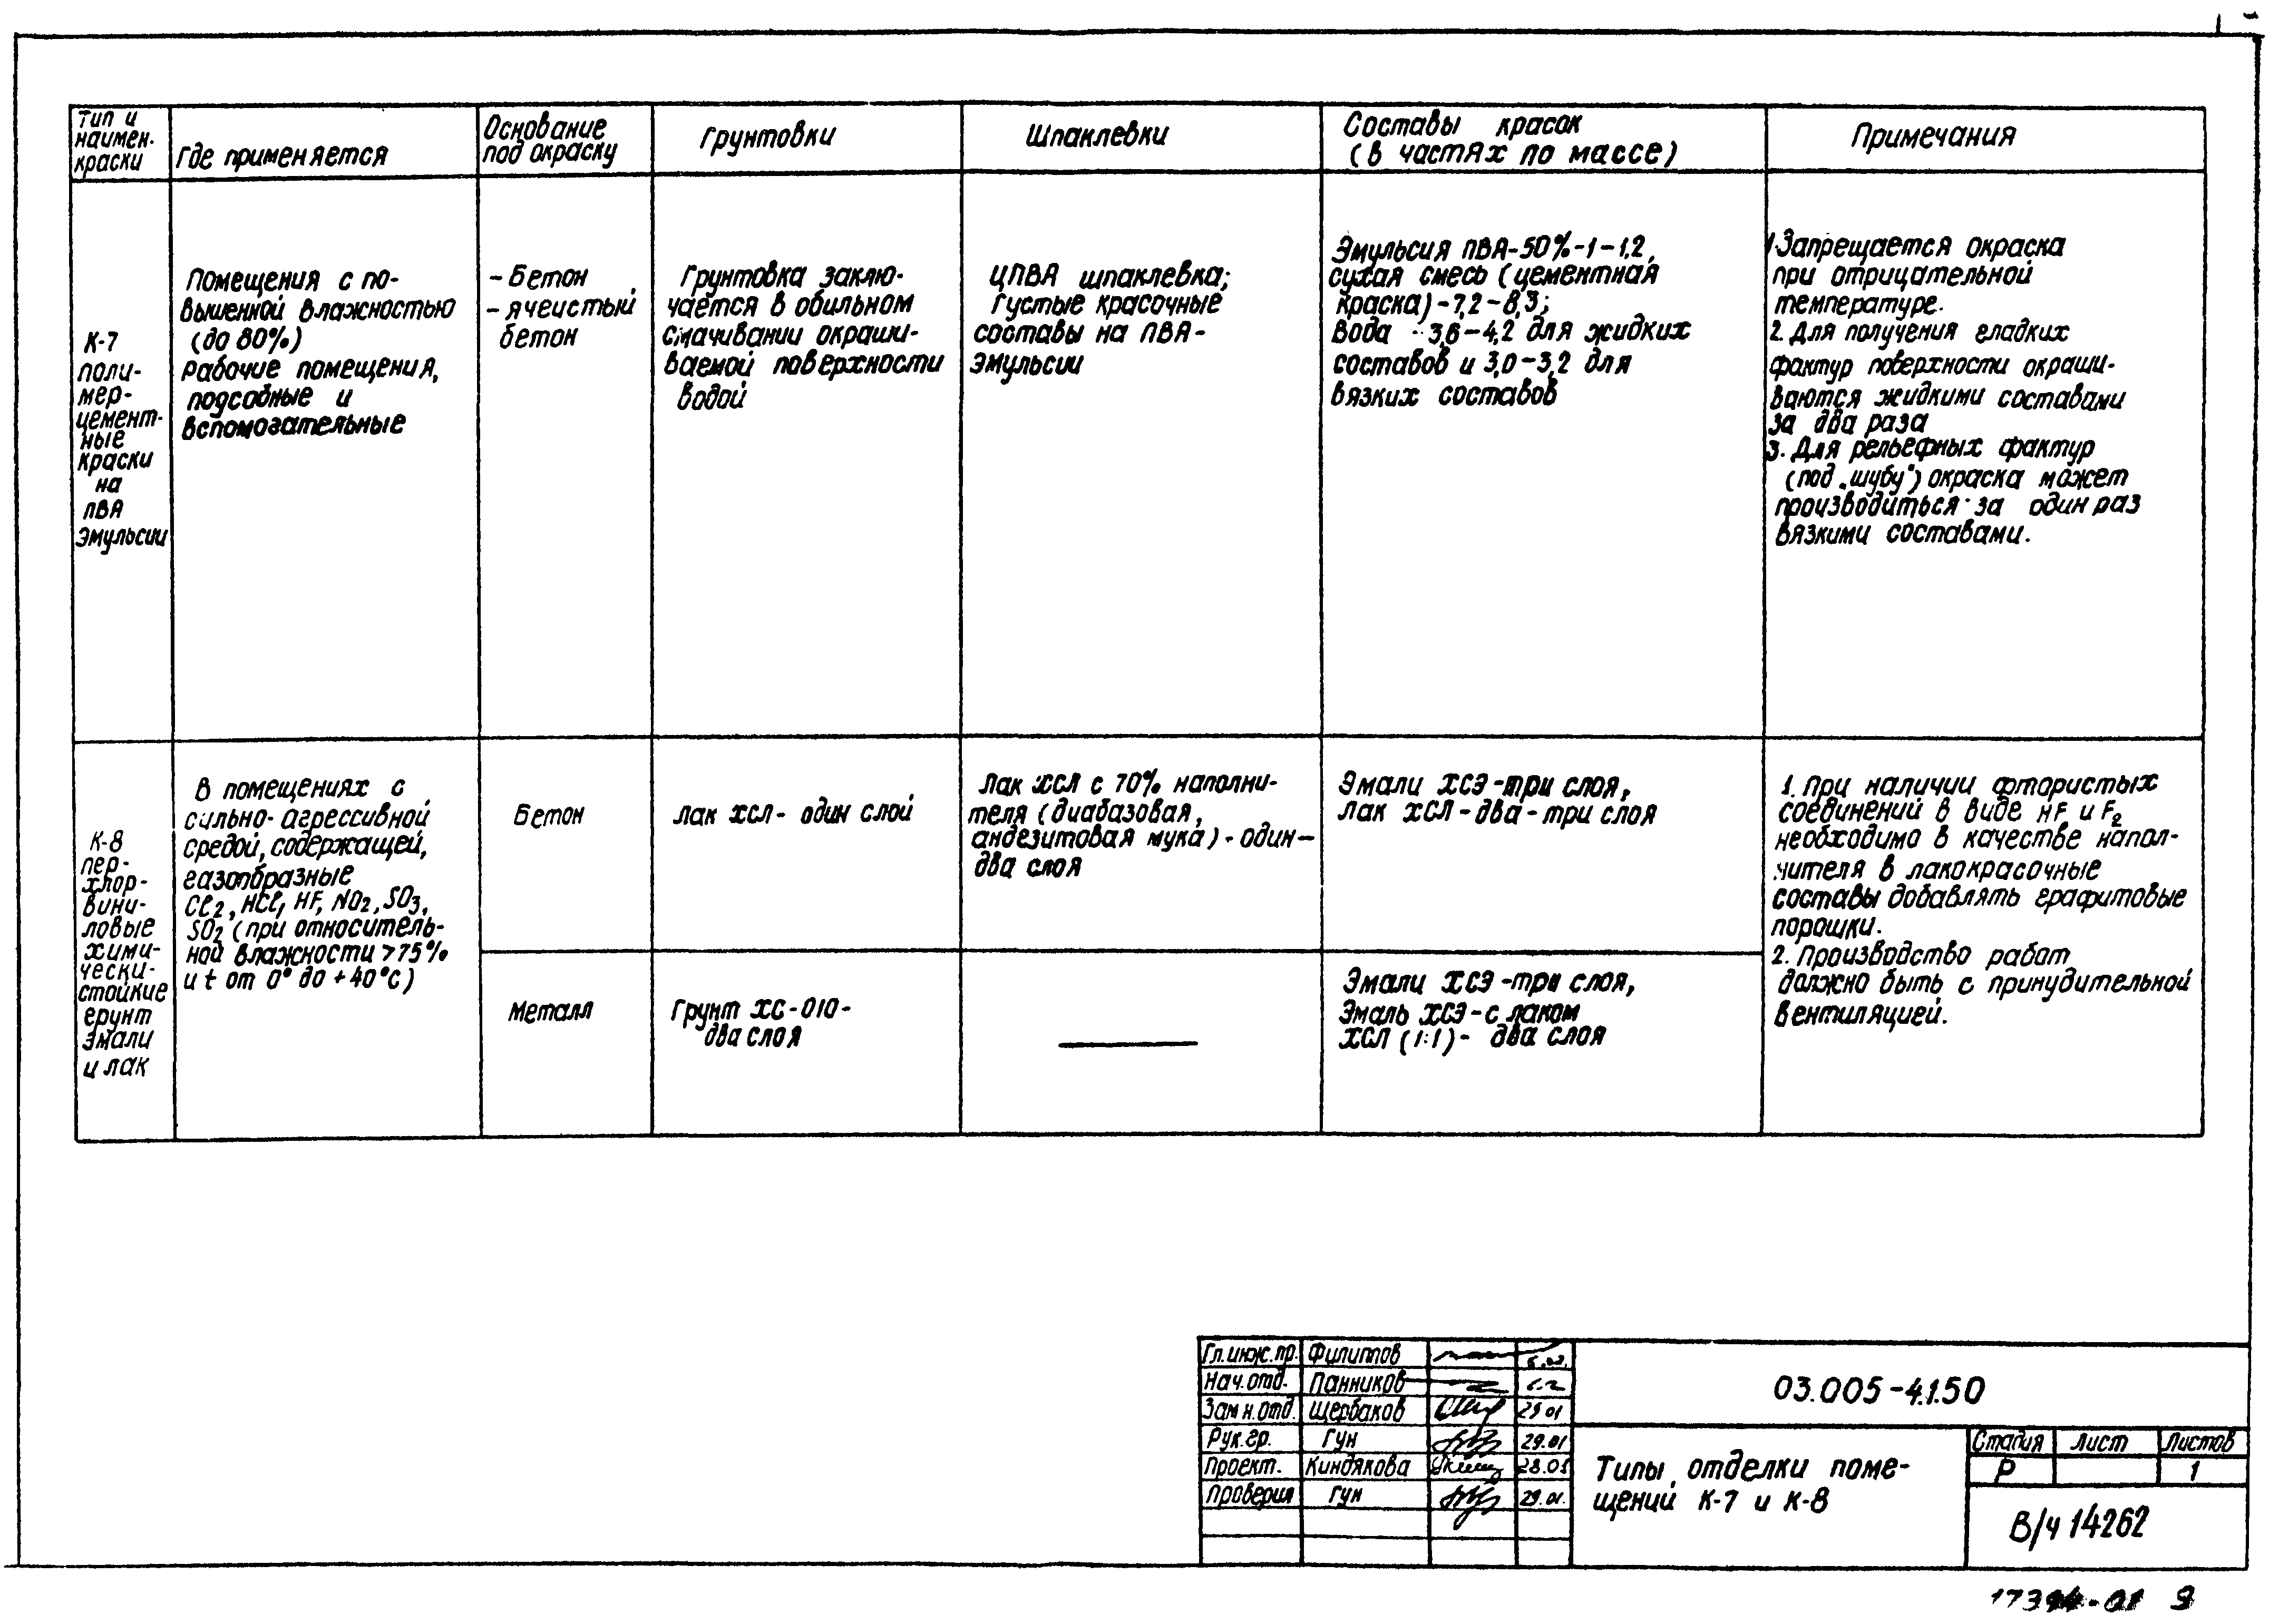 Тип и
наимен.
краски
Где применяется
Основание
под окраску
Грунтовки
Шпаклевки
Составы красок
(в частях по массе)
Примечания
К-7
поли-
мер-
цемент-
ные
краски
на
ПВА
эмульсии
Помещения с по-
вышенной влажностью
(до 80%)
Рабочие помещения,
подсобные и
вспомогательные
- Бетон
- ячеистый
бетон
Грунтовка заклю-
чается в обильном
смачивании окраши-
ваемой поверхности
водой
ЦПВА шпаклевка;
густые красочные
составы на ПВА-
эмульсии
Эмульсия ПВА-50%-1-1,2,
сухая смесь (цементная
краска)-7,2-8,3;
вода - 3,6-4,2 для жидких
составов и 3,0-3,2 для
вязких составов
1.Запрещается окраска
при отрицательной
температуре.
2. Для получения гладких
фактур поверхности окраши-
ваются жидкими составами
за два раза
3. Для рельефных фактур
(под „шубу“) окраска может
производиться за один раз
вязкими составами.
К-8
пер-
хлор-
вини-
ловые
хими-
чески-
стойкие
грунт
эмали
и лак
В помещениях с
сильно-агрессивной
средой, содержащей,
газообразные
Cl2, HCl, HF, NO2, SO3,
SO2 (при относитель-
ной влажности >75%
и t от 0° до +40°С)
Бетон
Лак ХСЛ- один слой
Лак ХСЛ с 70% наполни-
теля (диабазовая,
андезитовая мука)-один-
два слоя
Эмали ХСЭ-три слоя,
лак ХСЛ-два-три слоя
1. При наличии фтористых
соединений в виде HF и F2
необходимо в качестве напол-
нителя в лакокрасочные
составы добавлять графитовые
порошки.
2. Производство работ
должно быть с принудительной
вентиляцией.
Металл
Грунт ХС-010-
два слоя
Эмали ХСЭ-три слоя,
Эмаль ХСЭ-с лаком
ХСЛ (1:1)- два слоя
Гл.инж.пр. Филиппов
Нач.отд. Панников
Зам н.отд. Щербаков 29.01
Рук.гр. Гун 29.01
Проект. Киндякова
Проверил Гун 29.01.
03.005-4.1.50
Типы отделки поме-
щений К-7 и К-8
Стадия Лист Листов
Р 1
В/ч 14262
9